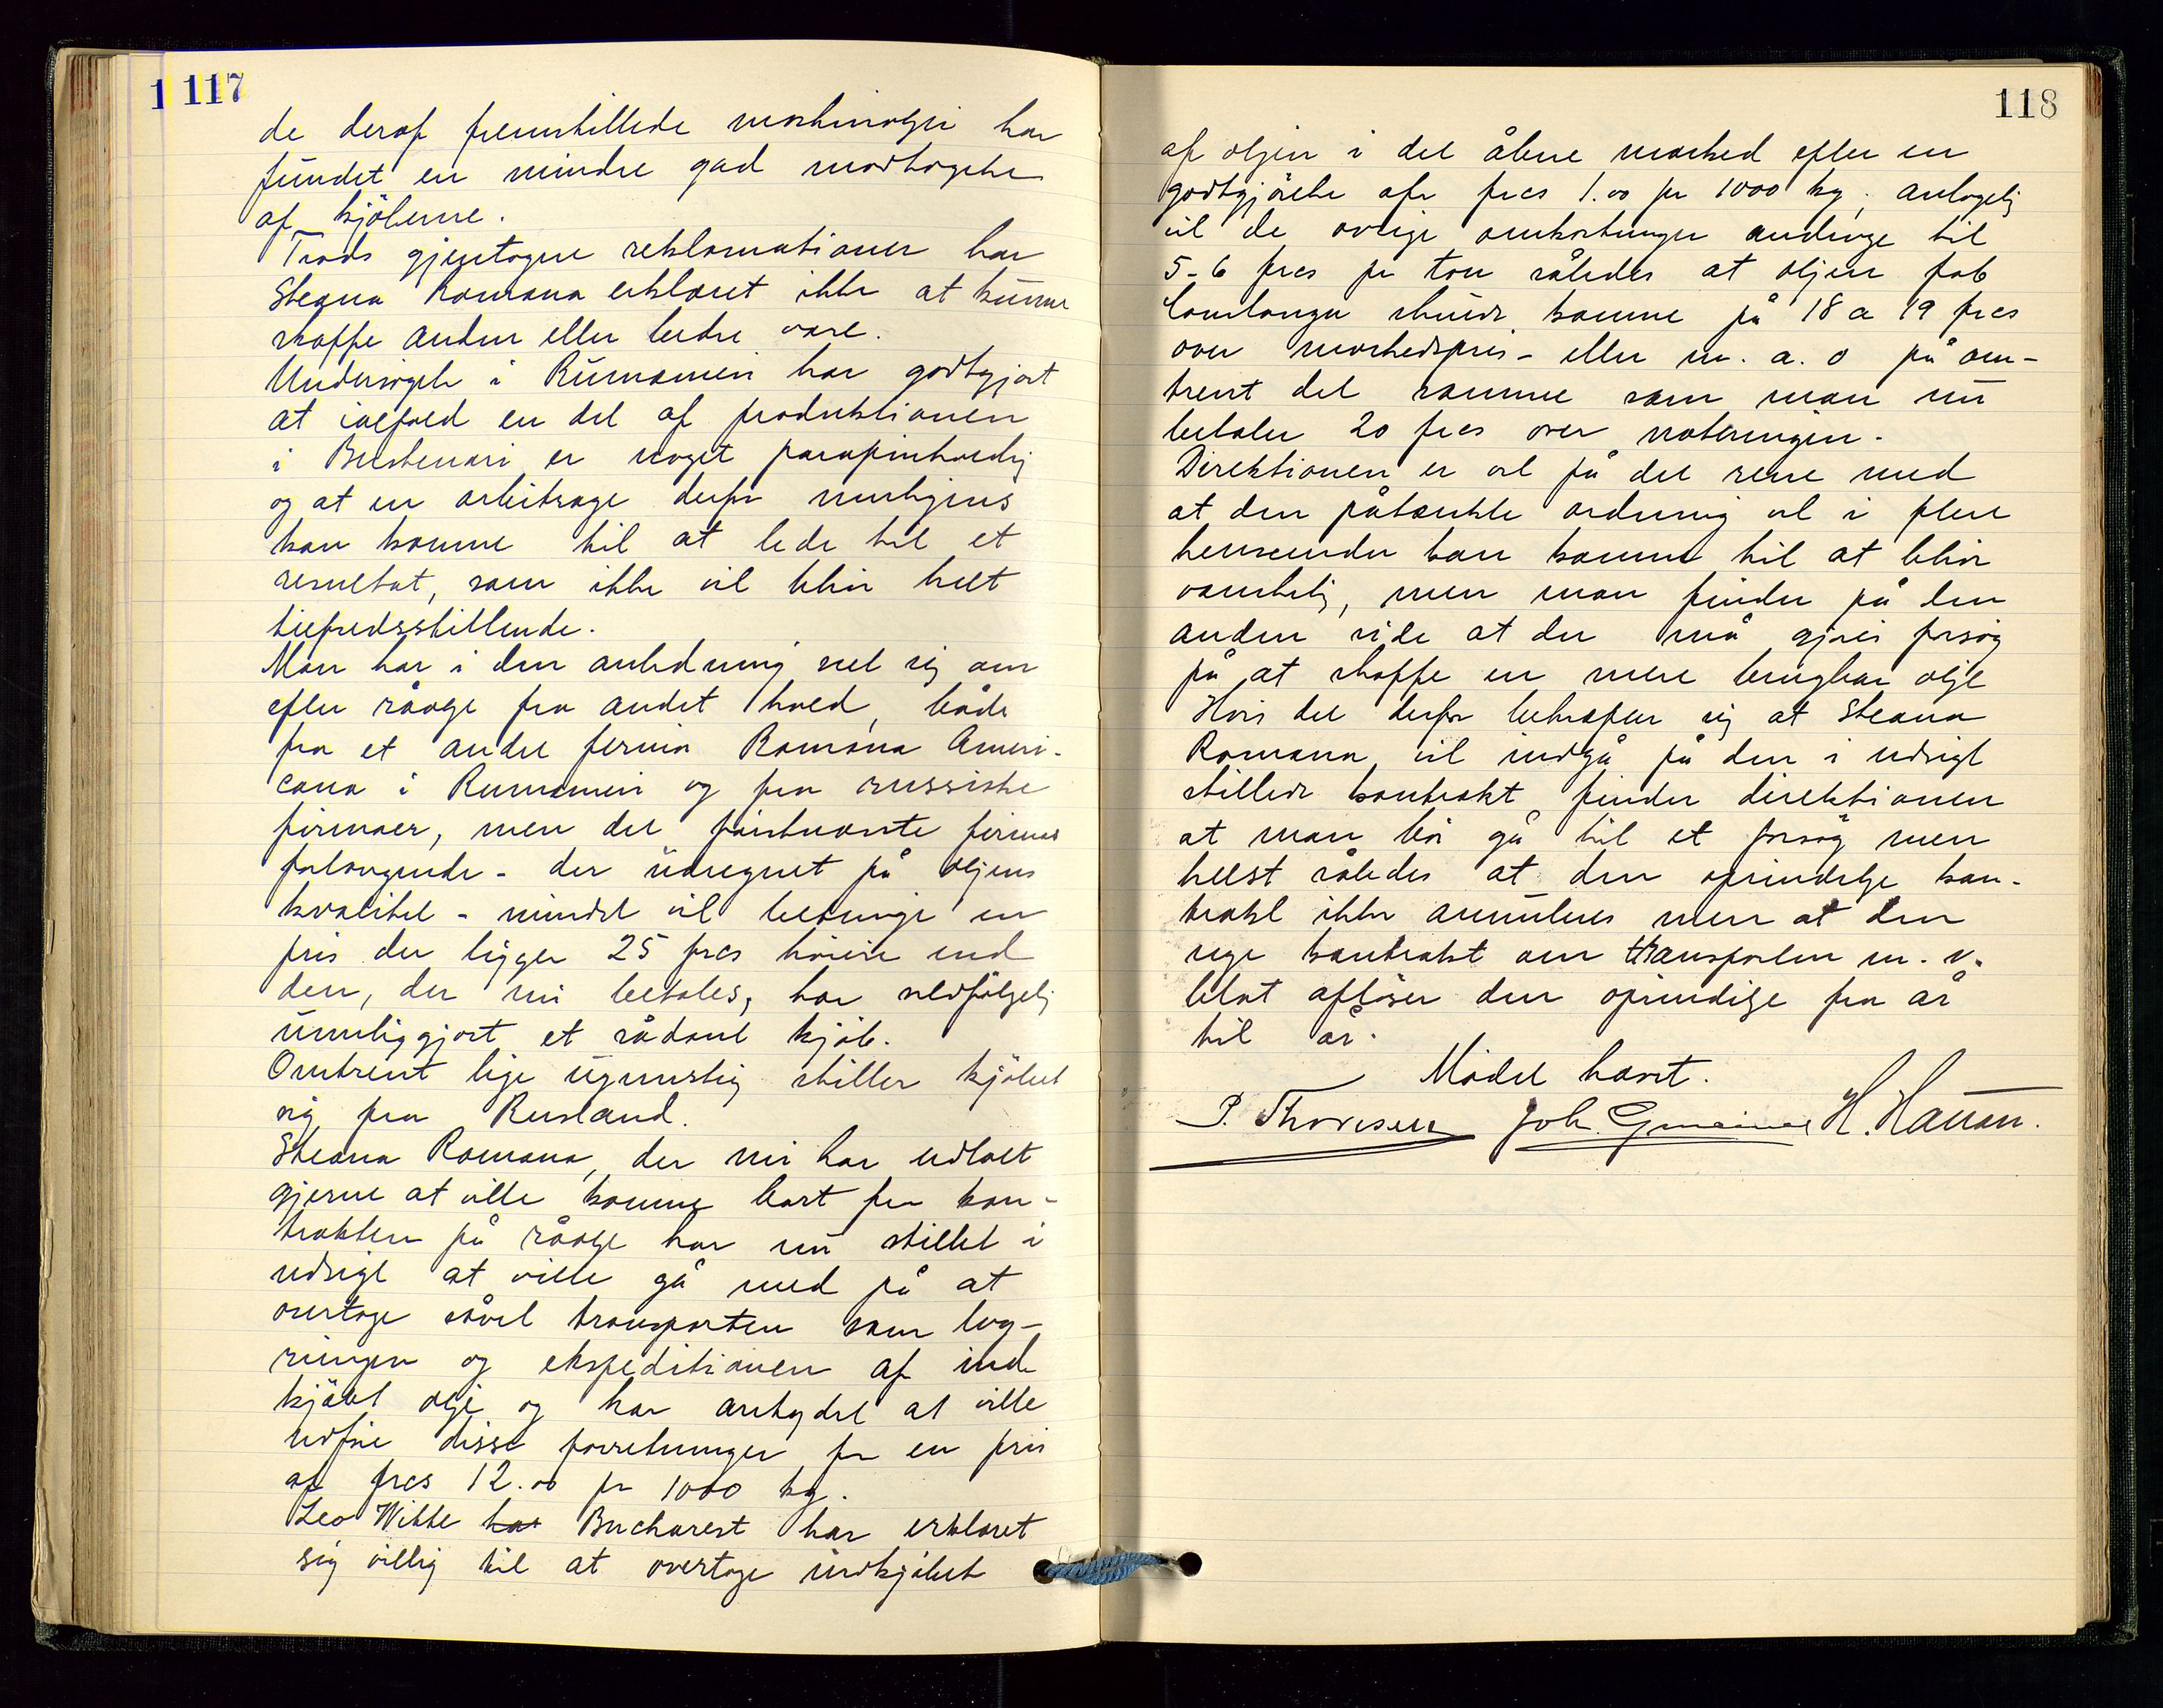 1 117
de deraf fremstillede maskinoljer har
fundet en mindre god modtagelse
af kjøberne.
Trods gjentagne reklamationer har
Steaua Romana erklæret ikke at kunne
skaffe anden eller bedre vare.
Undersøgelse i Rumænien har godtgjort
at ialfald en del af produktionen
i Bustenari er noget parafinholdig
og at en arbitrage derfor muligens
kan komme til at lede til et
resultat, som ikke vil blive helt
tilfredsstillende.
Man har i den anledning set sig om
efter råolje fra andet hold, både
fra et andet firma Romana Ameri-
cana i Rumænien og fra russiske
firmaer, men det førstnævnte firmas
forlangende - der udregnet på oljens
kvalitet - mindst vil betinge en
pris der ligger 25 frcs høiere end
den, der nu betales, har selvfølgelig
umuliggjort et sådant kjøb.
Omtrent lige ugunstig stiller kjøbet
sig fra Rusland.
Steaua Romana, der nu har udtalt
gjerne at ville komme bort fra kon-
trakten på råolje har nu stillet i
udsigt at ville gå med på at
overtage såvel transporten som lag-
ringen og ekspeditionen af ind-
kjøbt olje og har antydet at ville
udføre disse forretninger for en pris
af frcs 12.00 pr 1000 kg.
Leo Witte har Bucharest har erklæret
sig villig til at overtage indkjøbet
118
af oljen i det åbne marked efter en
godtgjörelse af frcs 1.00 pr 1000 kg; antagelig
vil de øvrige omkostninger andrage til
5-6 frcs pr ton således at oljen fob
Constanza skulde komme på 18 a 19 frcs
over markedspris - eller m. a. o på om-
trent det samme som man nu
betaler 20 frcs over noteringen.
Direktionen er vel på det rene med
at den påtænkte ordning vel i flere
henseender kan komme til at blive
vanskelig, men man finder på den
anden side at der må gjøres forsøg
på at skaffe en mere brugbar olje
Hvis det derfor bekræfter sig at Steaua
Romana vil indgå på den i udsigt
stillede kontrakt finder direktionen
at man bør gå til et forsøg men
helst således at den oprindelige kon-
trakt ikke annulleres men at den
nye kontrakt om transporten m. v.
blot afløser den oprindelige fra år
til år.
Mødet hævet.
P. Thoresen Joh. H. Hansen.